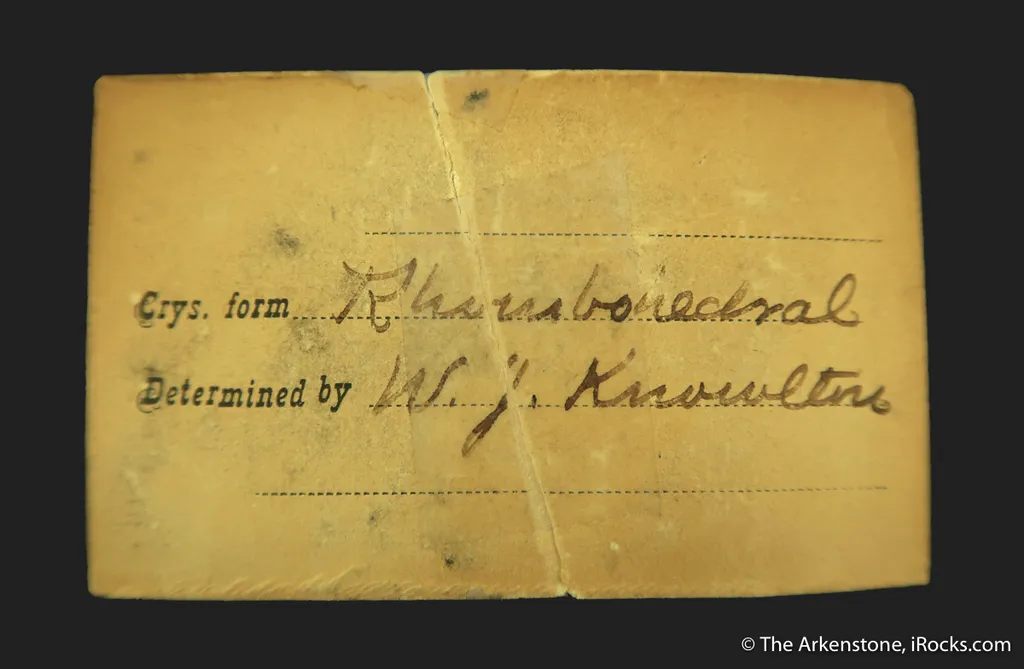 Crys. form Rhombohedral
Determined by W. J. Knowlton
© The Arkenstone, iRocks.com